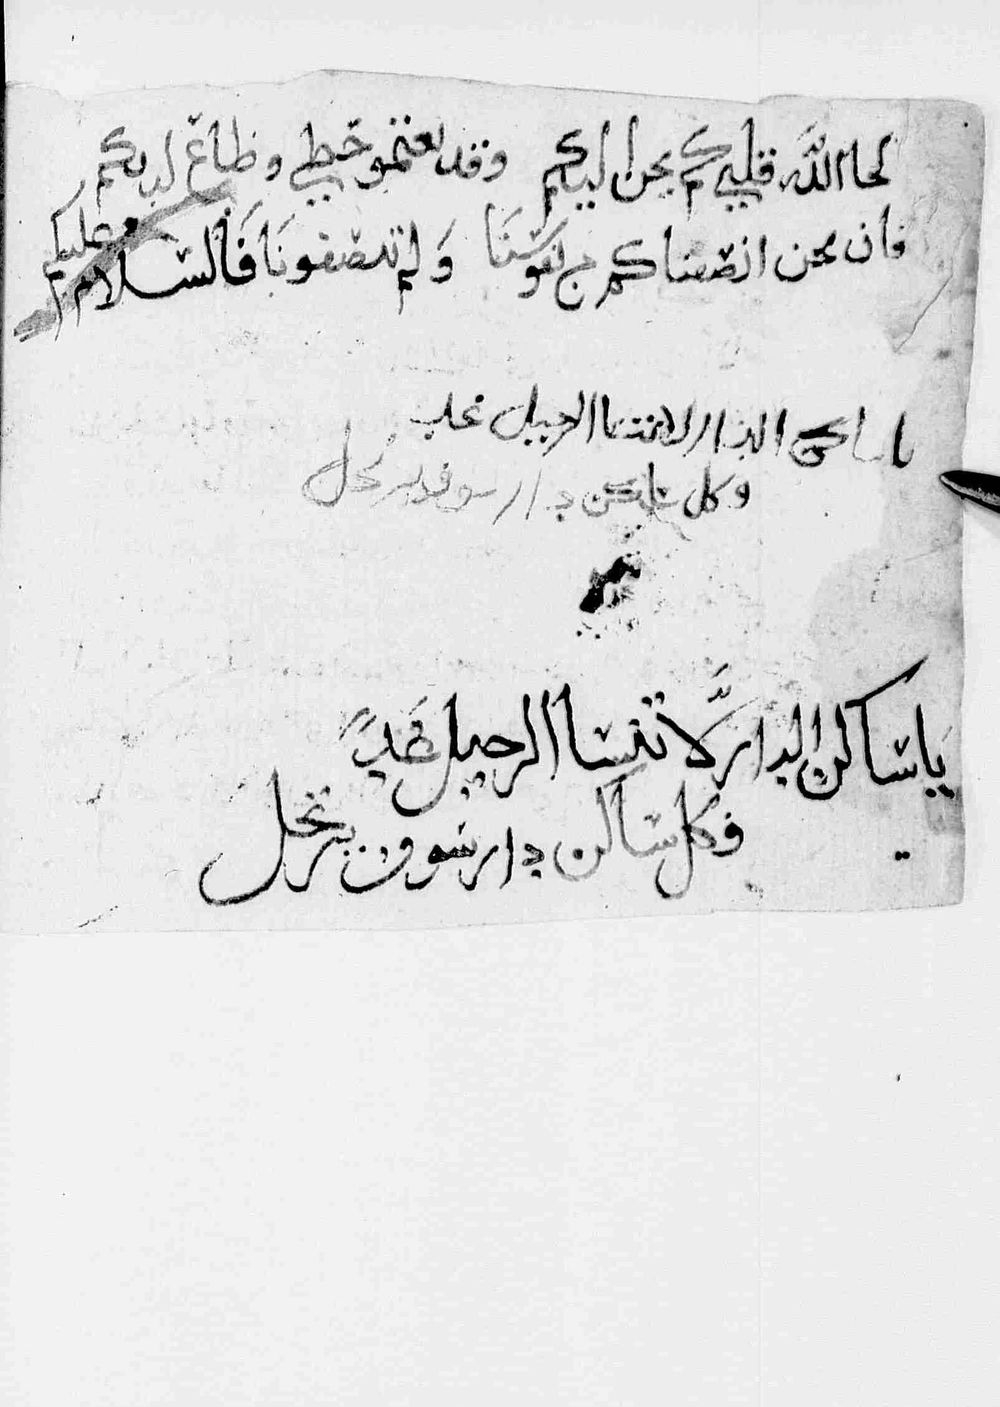 لحا الله قليبي كم يحن اليكم وقد بعتمو حظي وضاع لديكم
فان نحن انصفناكم من نفوسنا ولم تنصفونا فالسلام عليكم
يا ساكن الدار لا تنسا الرحيل غدا
وكل ساكن دار سوف يرتحل
يا ساكن الدار لا تنسا الرحيل غدا
وكل ساكن دار سوف يرتحل